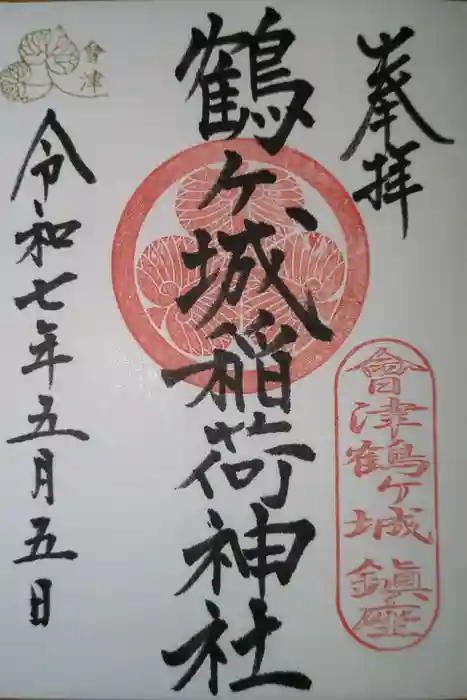 奉拝
會津鶴ヶ城鎮座
鶴ヶ城稲荷神社
會津
令和七年五月五日